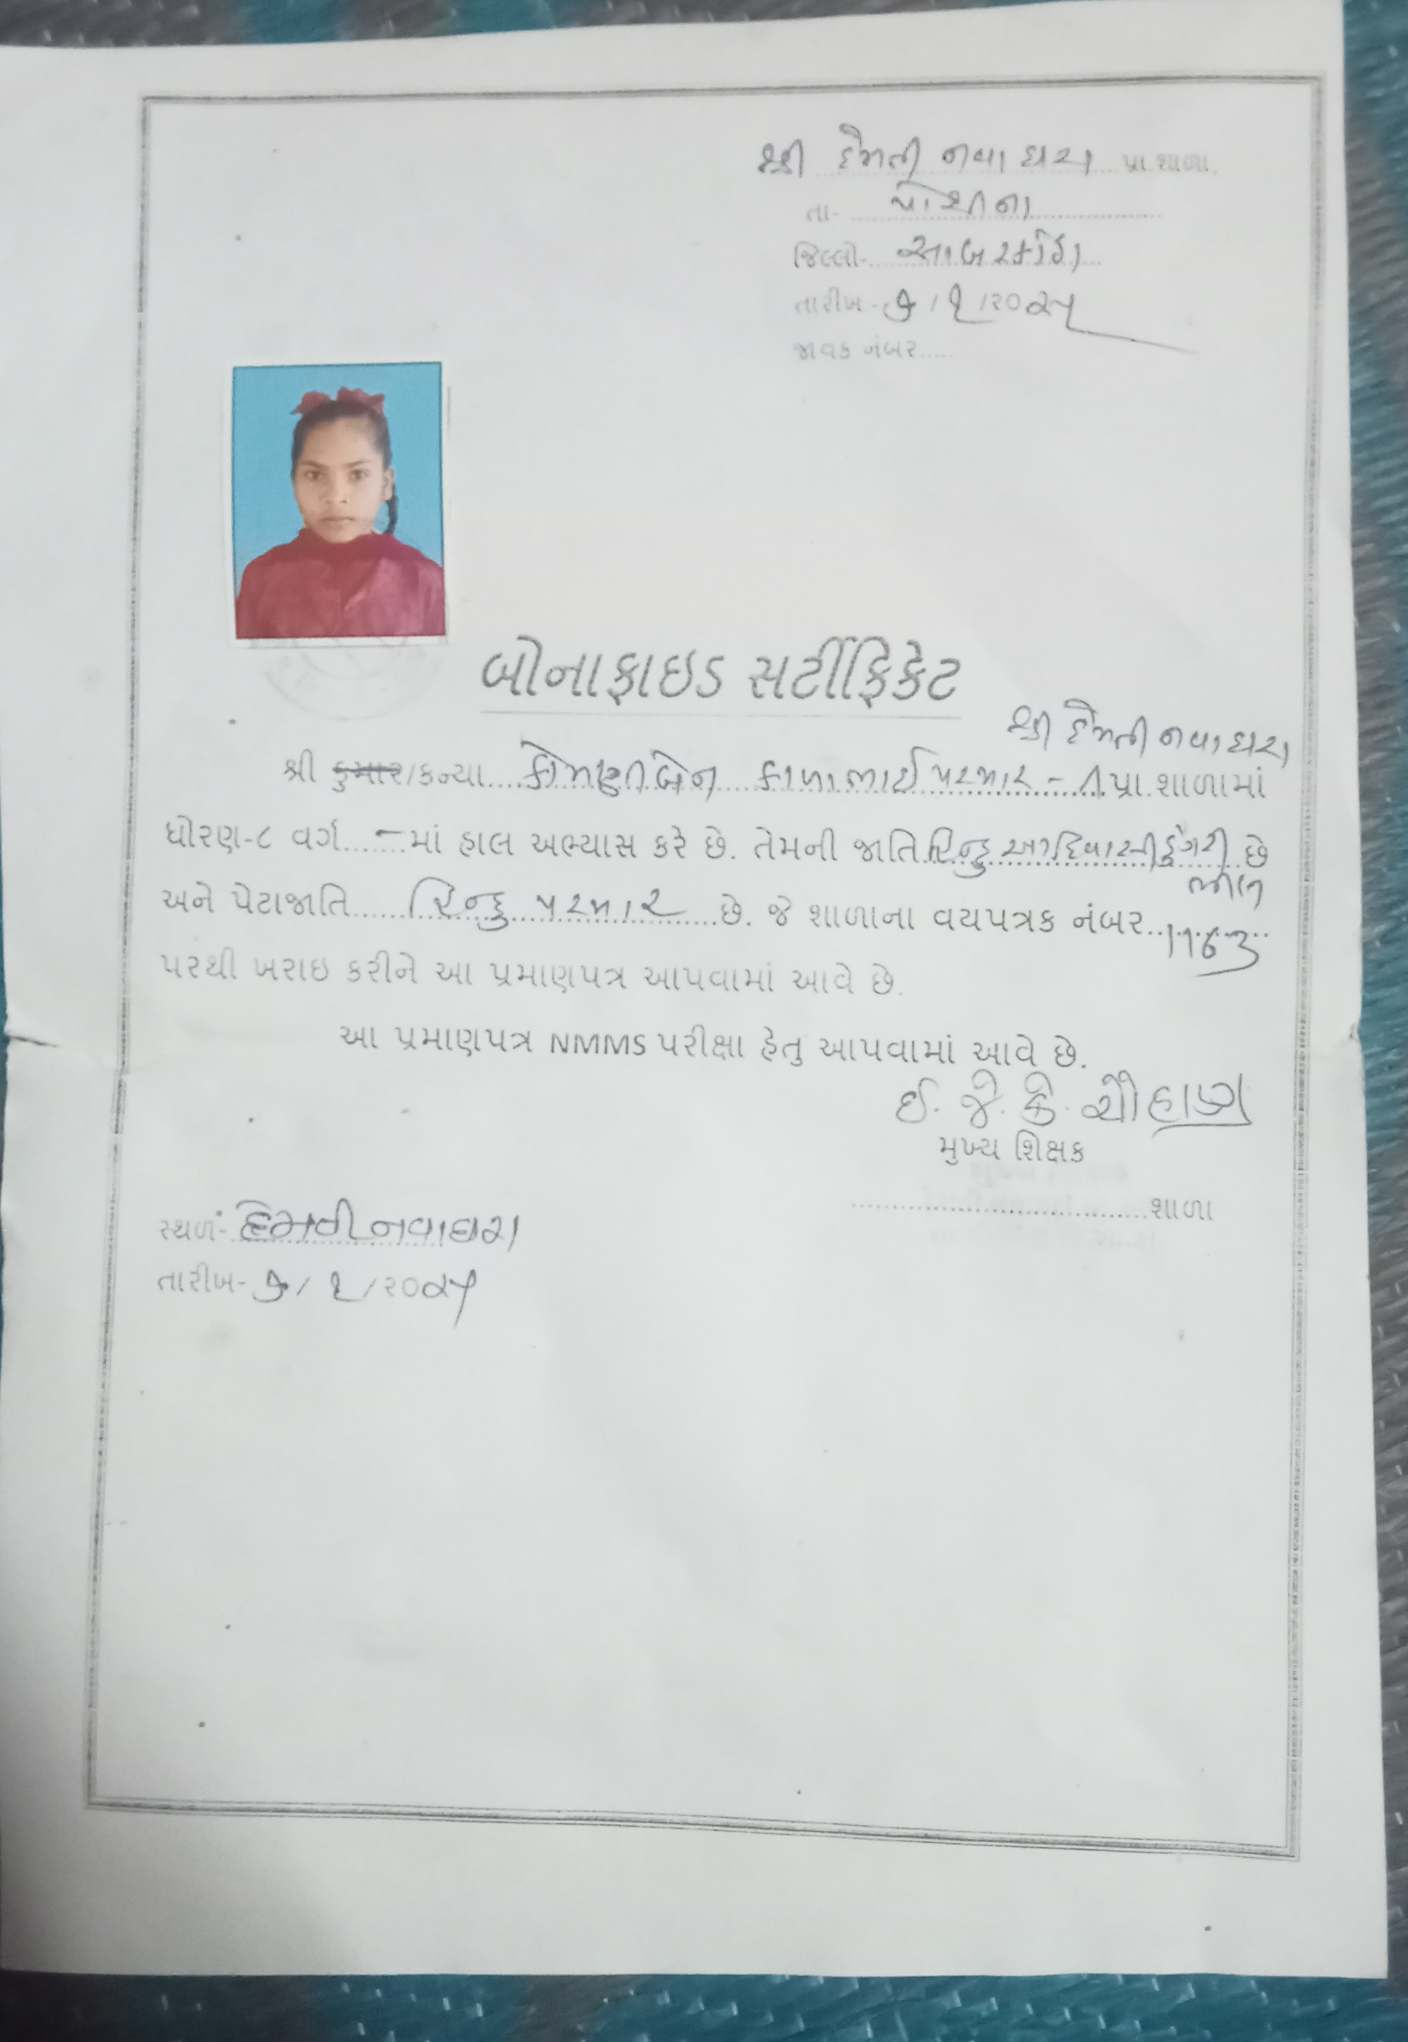 શ્રી હેમતી નવાઘરા પ્રા.શાળા.
તા- પોશીના
જિલ્લો- સાબરકાંઠા
તારીખ- ૭/૧/૨૦૨૫
જાવક નંબર.....
બોનાફાઇડ સર્ટીફિકેટ
શ્રી હેમતી નવાઘરા
શ્રી કુમાર/કન્યા... કાળાભાઈ પરમાર - પ્રા.શાળામાં
ધોરણ-૮ વર્ગ......-માં હાલ અભ્યાસ કરે છે. તેમની જાતિ હિન્દુ આદિવાસી ડુંગરી છે
ભીલ
અને પેટાજાતિ..... હિન્દુ પરમાર ...છે. જે શાળાના વયપત્રક નંબર.........
1163
પરથી ખરાઇ કરીને આ પ્રમાણપત્ર આપવામાં આવે છે.
આ પ્રમાણપત્ર NMMS પરીક્ષા હેતુ આપવામાં આવે છે.
ઈ. જે. કે. ચૌહાણ
મુખ્ય શિક્ષક
................................શાળા
સ્થળં- હેમતી નવાઘરા
તારીખ- ૭/૧/૨૦૨૫